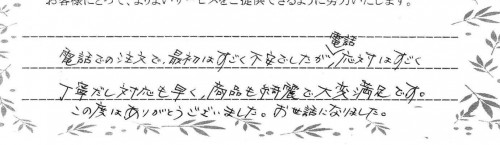 お客様にとって、よりよいサービスをご提供できるように努力いたします。
電話での注文で、最初はすごく不安でしたが電話応対はすごく
丁寧だし対応も早く、商品も綺麗で大変満足です。
この度はありがとうございました。お世話になりました。